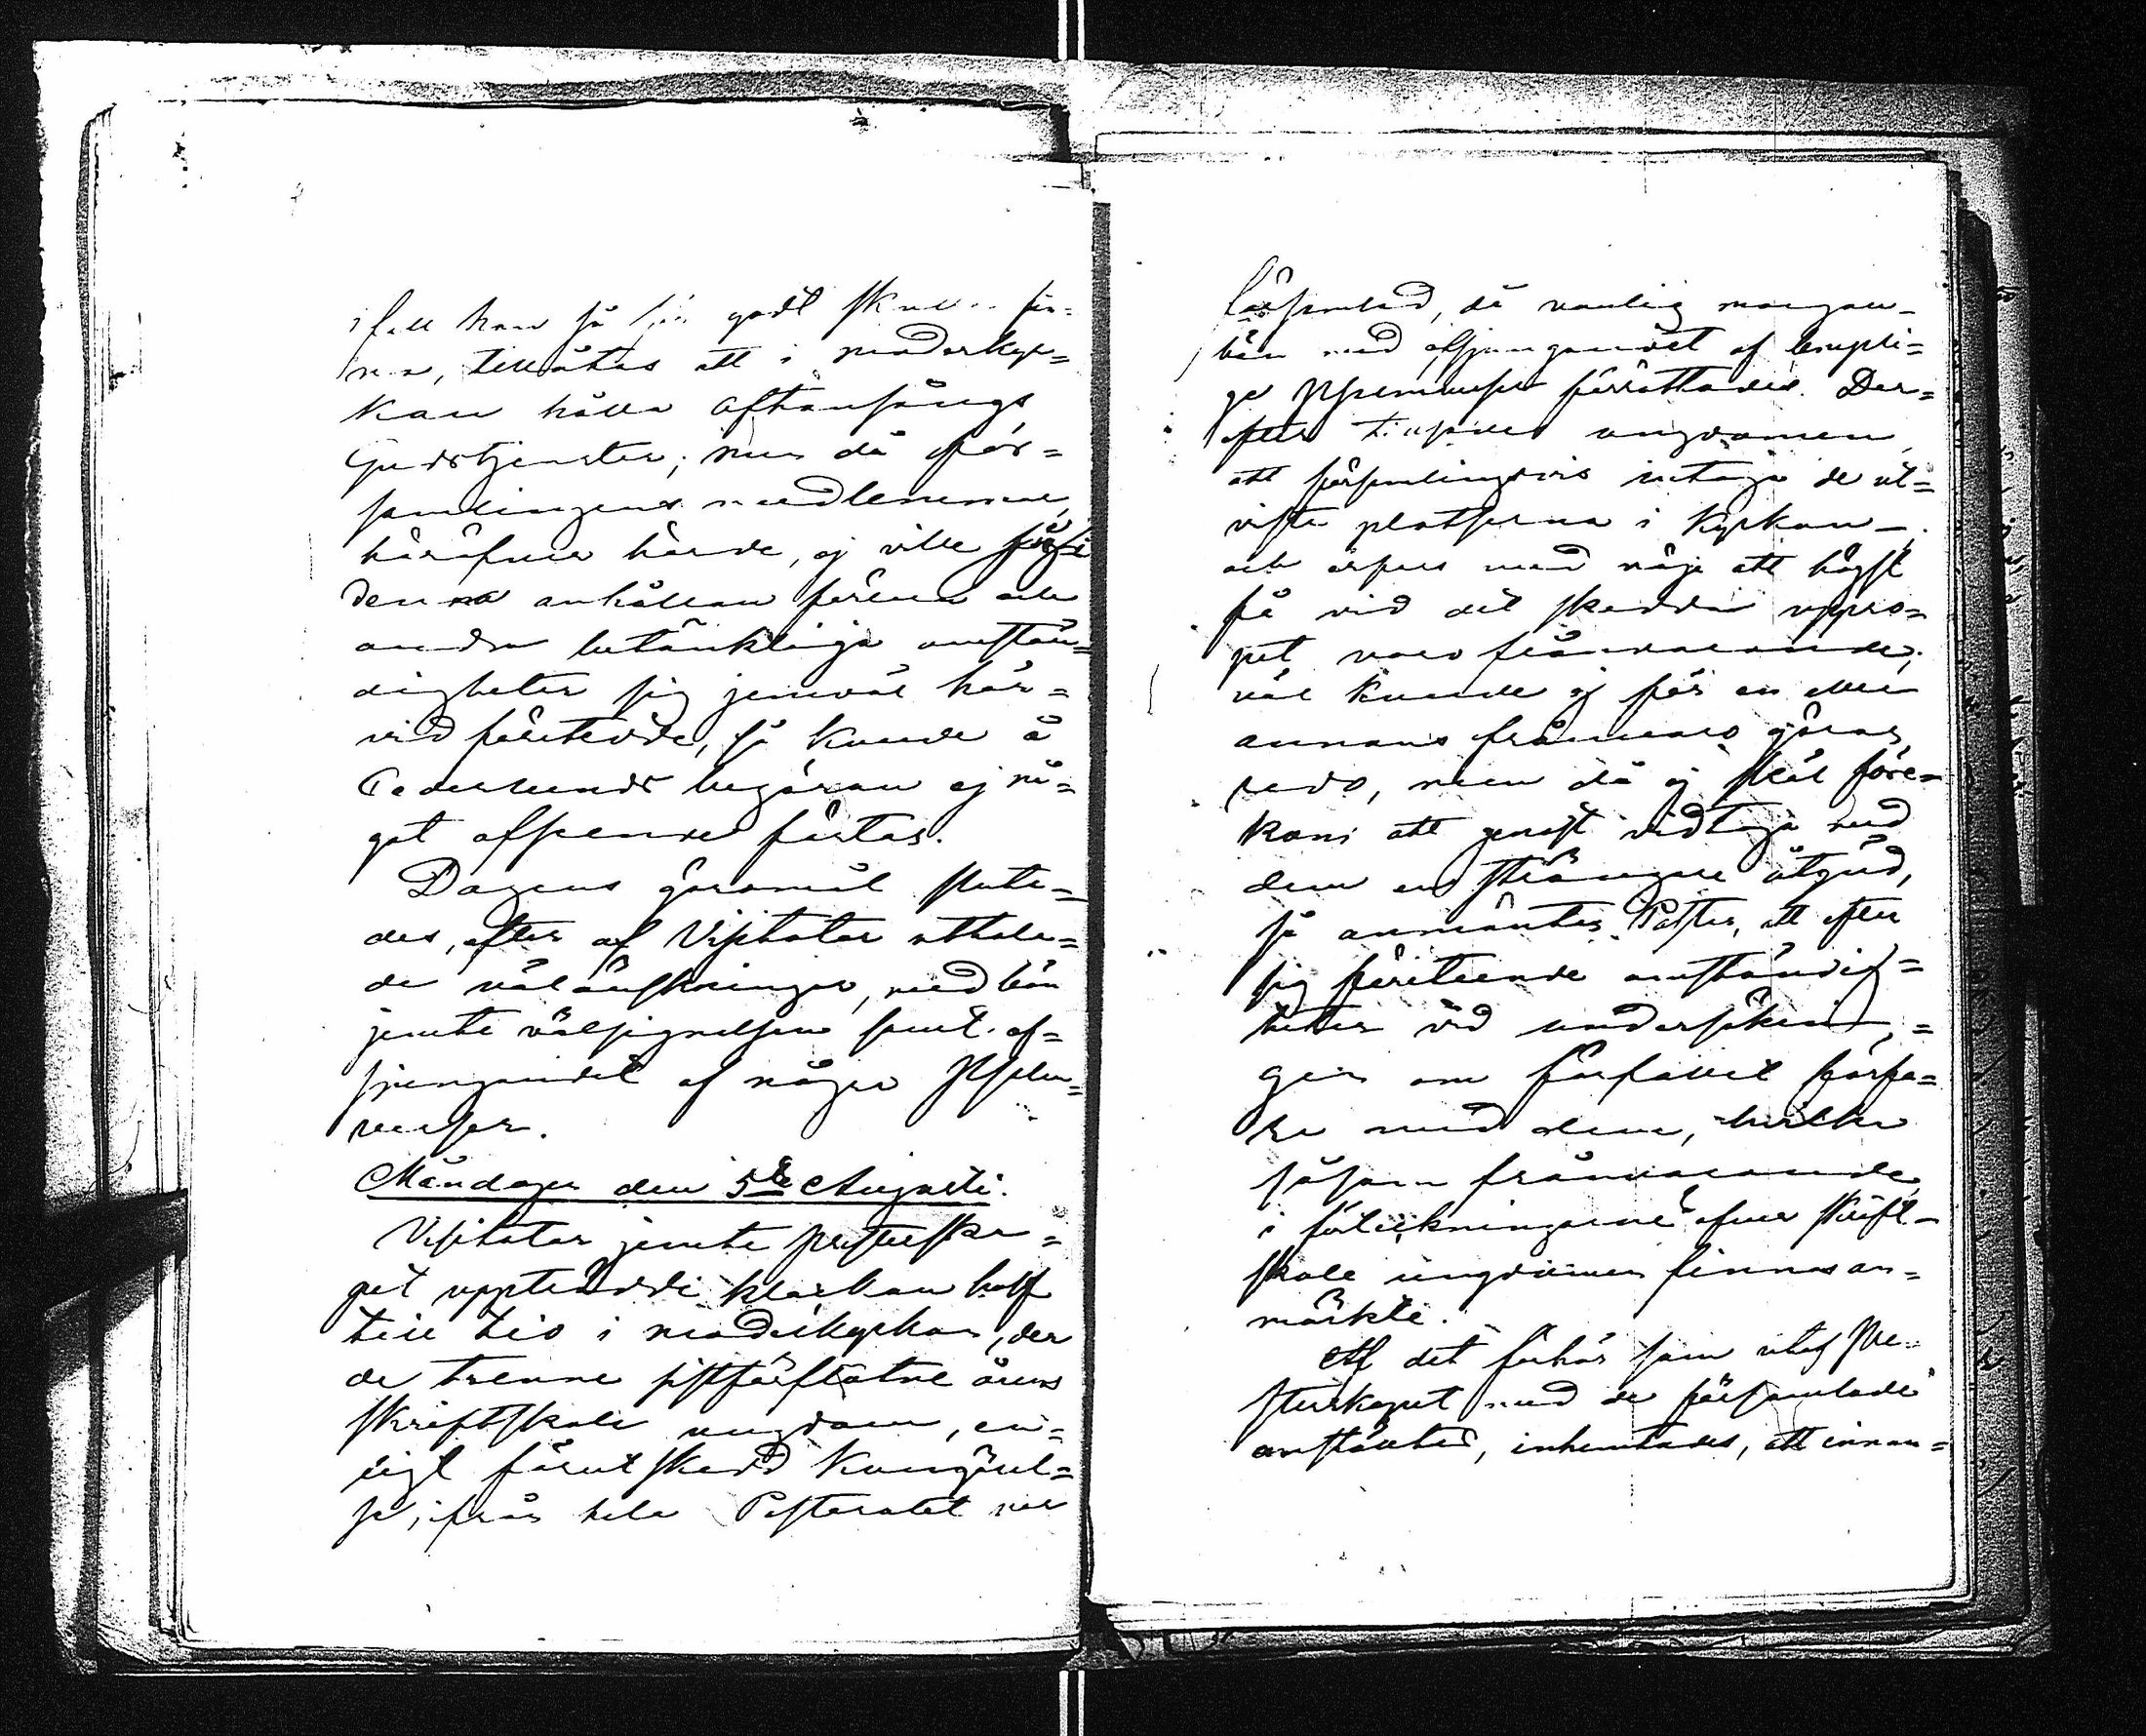 ifall han så för godt skulle fin=
na, tillåtas att i moderkyr=
kan hålla Aftonsångs
Gudstjenster; men då för=
samlingens medlemmar
häröfver hörde, ej ville
denna anhållan förena och
andra betänkliga omstän=
digheter sig jemväl här=
vid företedde, så kunde å
Cederlunds begäran ej nå=
got afseende fästas.
Dagens göromål sluta=
des, efter af Visitator uttala=
de välönskningar, med bön
jemte välsignelsen samt af=
sjungandet af några Psalm=
verser.
Måndagen den 5te Augusti.
Visitator jemte presterska=
pet uppträdde klockan half
till tio i moderkyrkan, der
de trenne sistförflutne årens
skriftskole ungdom, en=
ligt förut skedd kungörel=
se, ifrån hela Pastoratet var
församlad, då vanlig morgon=
bön med afsjungandet af lämpli=
ga Psalmverser förrättades. Der=
efter tillsades ungdomen
att församlingsvis intaga de ut=
viste platserna i Kyrkan
och erfors med nöje att högst
få vid det skedda uppro=
pet voro frånvarande;
väl kunde ej för en eller
annans frånvaro göras
redo, men då ej skäl före=
kom att genast vidtaga med
dem en strängare åtgärd,
så anmantes Pastor, att efter
sig företeende omständig=
heter vid undersöknin=
gen om förfallet förfa=
ra med dem, hvilka
såsom frånvarande
i förteckningarne öfver skrift=
skole ungdomen finnas an=
märkte.
Af det förhör som utaf Pre=
sterskapet med de församlade
anställdes, inhemtades, att innan=